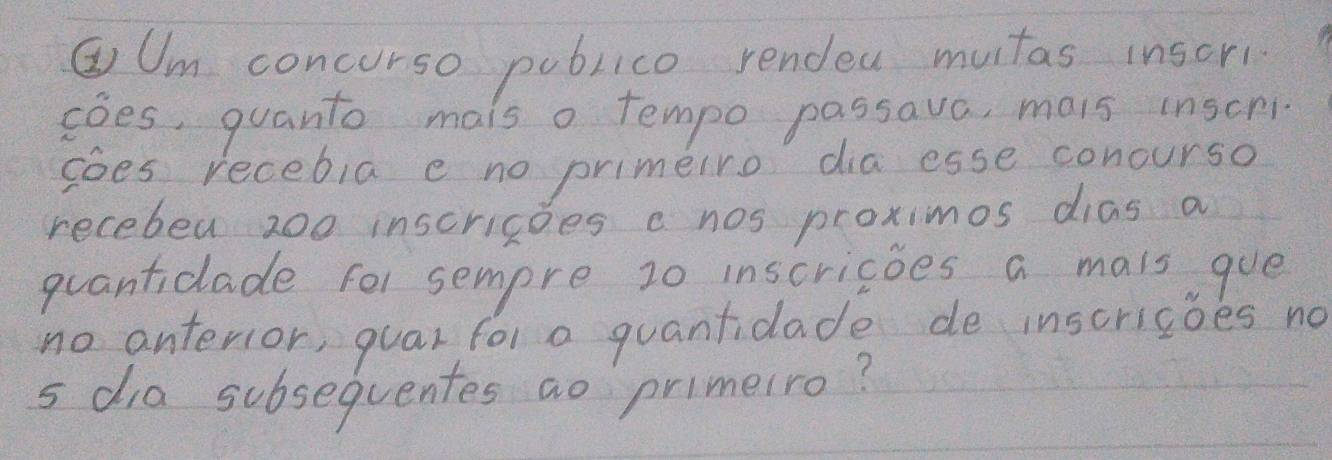 ① Um concurso publico rendeu muitas inscri-
ções, quanto mais o tempo passava, mais inscri-
ções recebia e no primeiro dia esse concurso
recebeu 200 inscrições e nos proximos dias a
quantidade foi sempre 10 inscrições a mais que
no anterior, qual foi a quantidade de inscrições no
5 dia subsequentes ao primeiro?